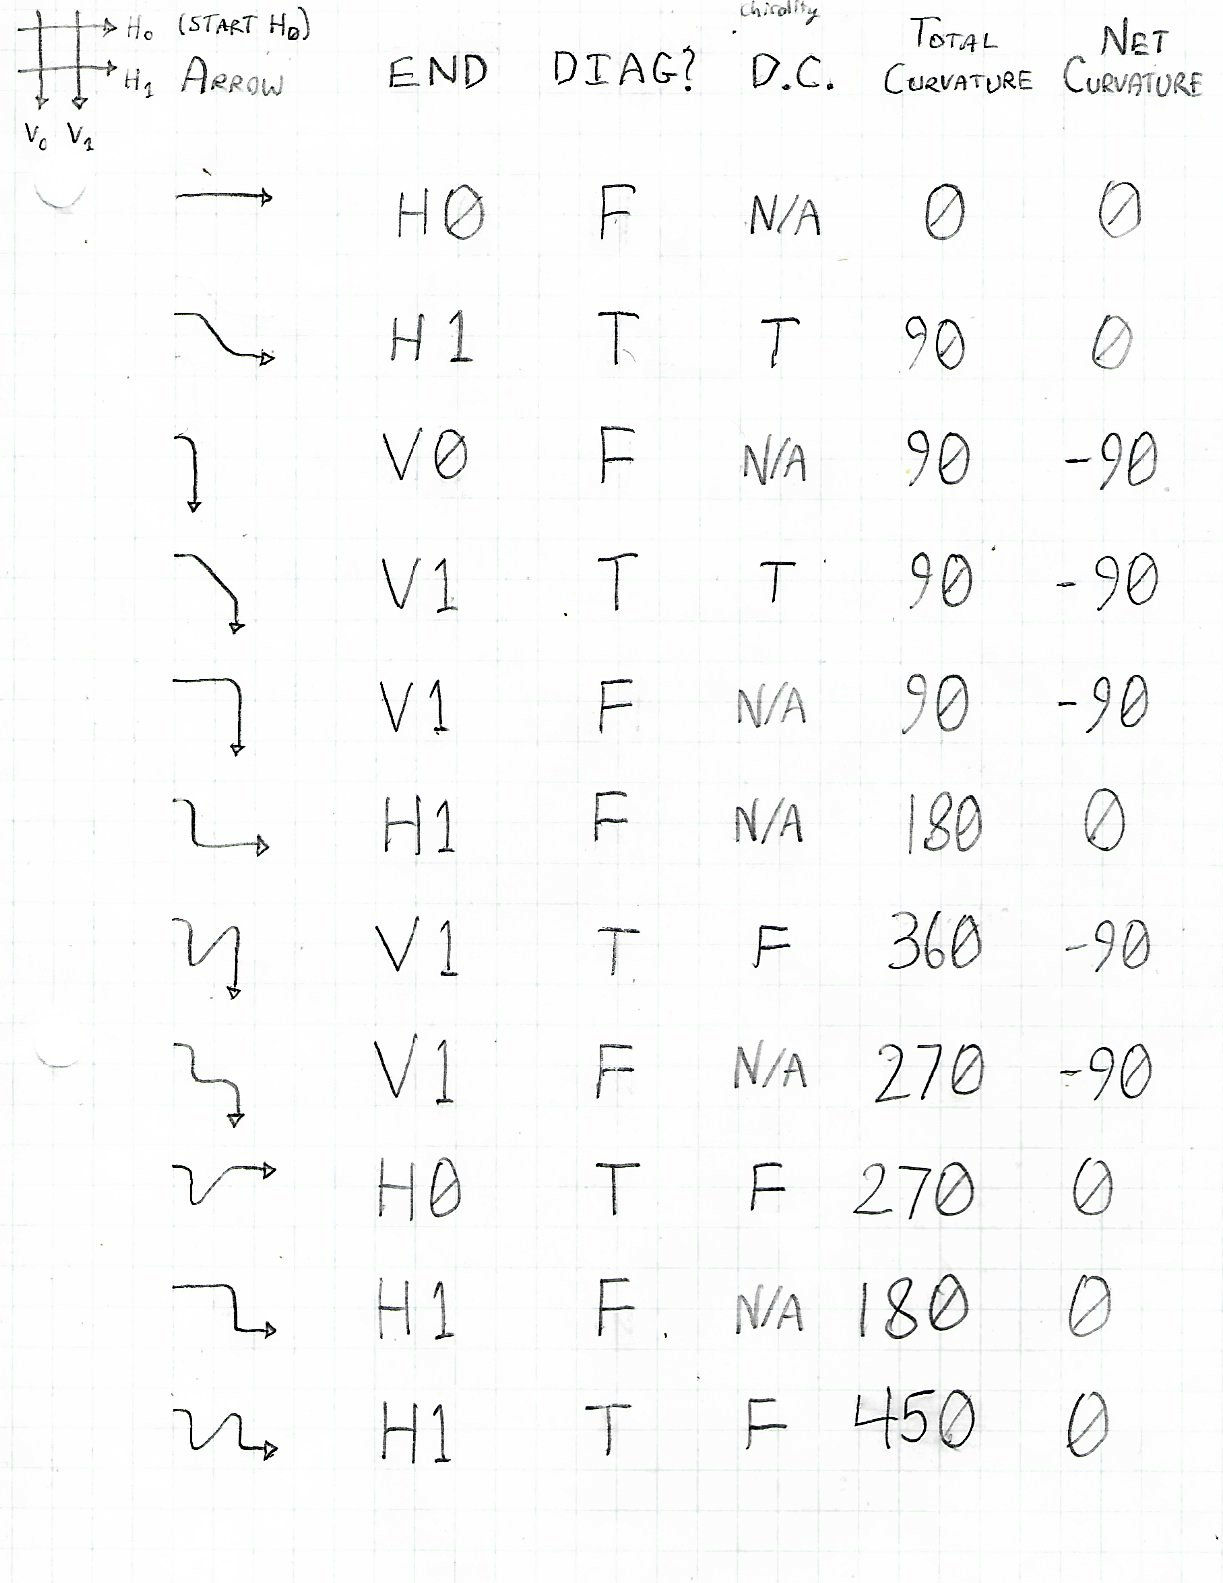 H0 (START H0)
H1 ARROW END DIAG? chirality D.C. TOTAL CURVATURE NET CURVATURE
V0 V1
H0 F N/A 0 0
H1 T T 90 0
V0 F N/A 90 -90
V1 T T 90 -90
V1 F N/A 90 -90
H1 F N/A 180 0
V1 T F 360 -90
V1 F N/A 270 -90
H0 T F 270 0
H1 F N/A 180 0
H1 T F 450 0